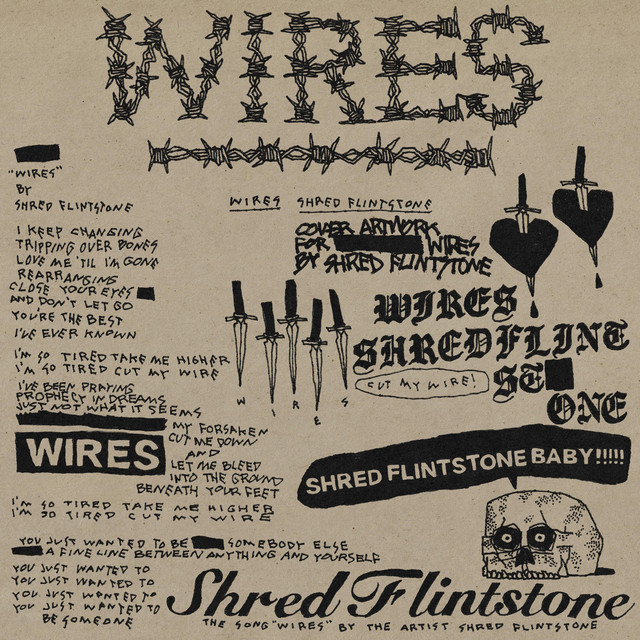 WIRES
"WIRES"
BY
SHRED FLINTSTONE
I KEEP CHANGING
TRIPPING OVER BONES
LOVE ME 'TIL I'M GONE
REARRANGING
CLOSE YOUR EYES
AND DON'T LET GO
YOU'RE THE BEST
I'VE EVER KNOWN
I'M SO TIRED TAKE ME HIGHER
I'M SO TIRED CUT MY WIRE
I'VE BEEN PRAYING
PROPHECY IN DREAMS
JUST NOT WHAT IT SEEMS
WIRES
MY FORSAKEN
CUT ME DOWN
AND
LET ME BLEED
INTO THE GROUND
BENEATH YOUR FEET
I'M SO TIRED TAKE ME HIGHER
I'M SO TIRED CUT MY WIRE
YOU JUST WANTED TO BE SOMEBODY ELSE
A FINE LINE BETWEEN ANYTHING AND YOURSELF
YOU JUST WANTED TO
YOU JUST WANTED TO
YOU JUST WANTED TO
YOU JUST WANTED TO
BE SOMEONE
WIRES SHRED FLINTSTONE
COVER ARTWORK
FOR WIRES
BY SHRED FLINTSTONE
WIRES
WIRES
SHREDFLINT
ST
ONE
CUT MY WIRE!
SHRED FLINTSTONE BABY!!!!!
Shred Flintstone
THE SONG "WIRES" BY THE ARTIST SHRED FLINTSTONE